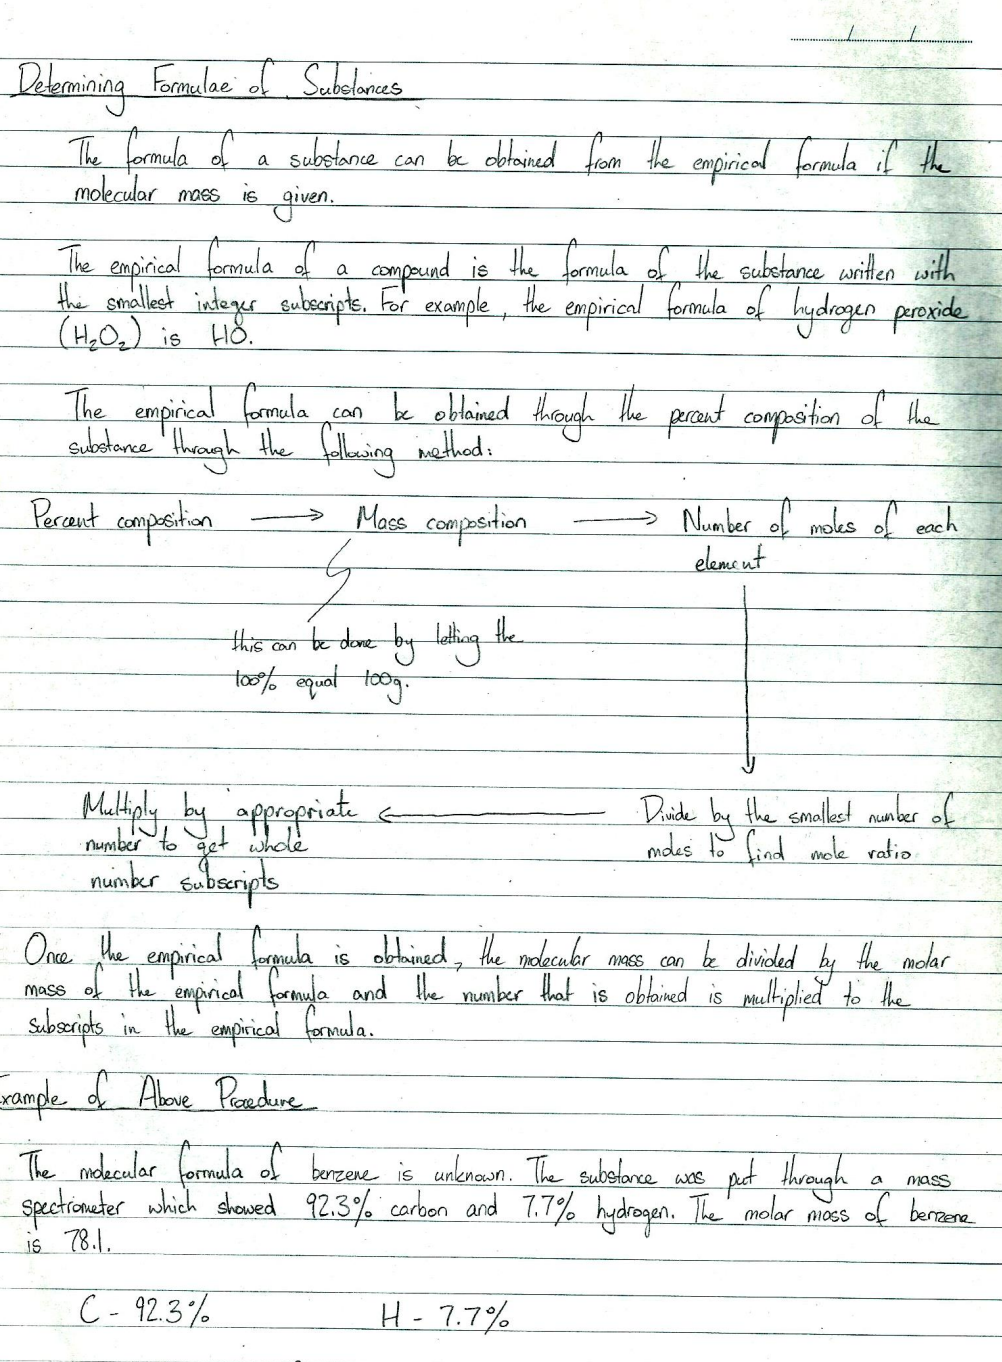 Determining Formulae of Substances
The formula of a substance can be obtained from the empirical formula if the
molecular mass is given.
The empirical formula of a compound is the formula of the substance written with
the smallest integer subscripts. For example, the empirical formula of hydrogen peroxide
(H₂O₂) is HO.
The empirical formula can be obtained through the percent composition of the
substance through the following method:
Percent composition → Mass composition → Number of moles of each
element
this can be done by letting the
100% equal 100g.
Multiply by appropriate ← Divide by the smallest number of
number to get whole moles to find mole ratio.
number subscripts
Once the empirical formula is obtained, the molecular mass can be divided by the molar
mass of the empirical formula and the number that is obtained is multiplied to the
subscripts in the empirical formula.
xample of Above Procedure
The molecular formula of benzene is unknown. The substance was put through a mass
spectrometer which showed 92.3% carbon and 7.7% hydrogen. The molar mass of benzene
is 78.1.
C - 92.3% H - 7.7%